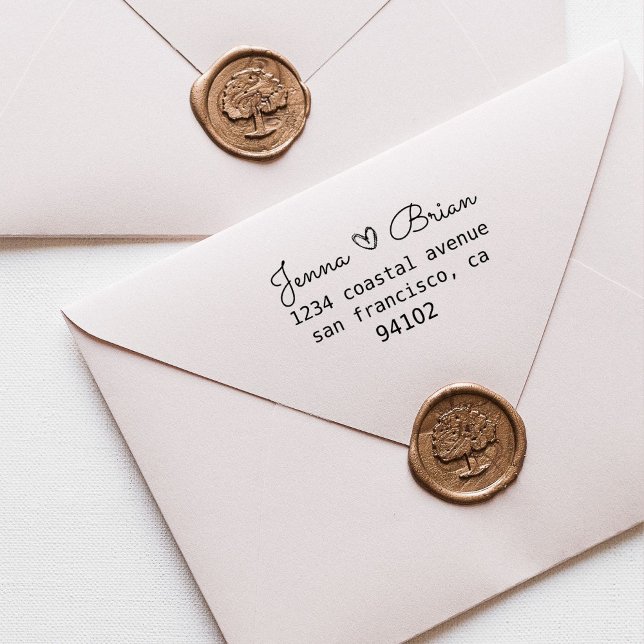 Jenna ♡ Brian
1234 coastal avenue
san francisco, ca
94102